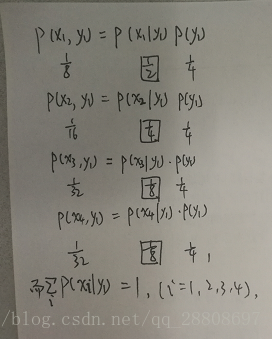 P(x₁, y₁) = P(x₁|y₁) P(y₁)
1/8 1/2 1/4
P(x₂, y₁) = P(x₂|y₁) P(y₁)
1/16 1/4 1/4
P(x₃, y₁) = P(x₃|y₁) · P(y₁)
1/32 1/8 1/4
P(x₄, y₁) = P(x₄|y₁) · P(y₁)
1/32 1/8 1/4 ,
而∑ᵢ P(xᵢ|y₁) = 1, (i=1,2,3,4),
/blog.csdn.net/qq_28808697